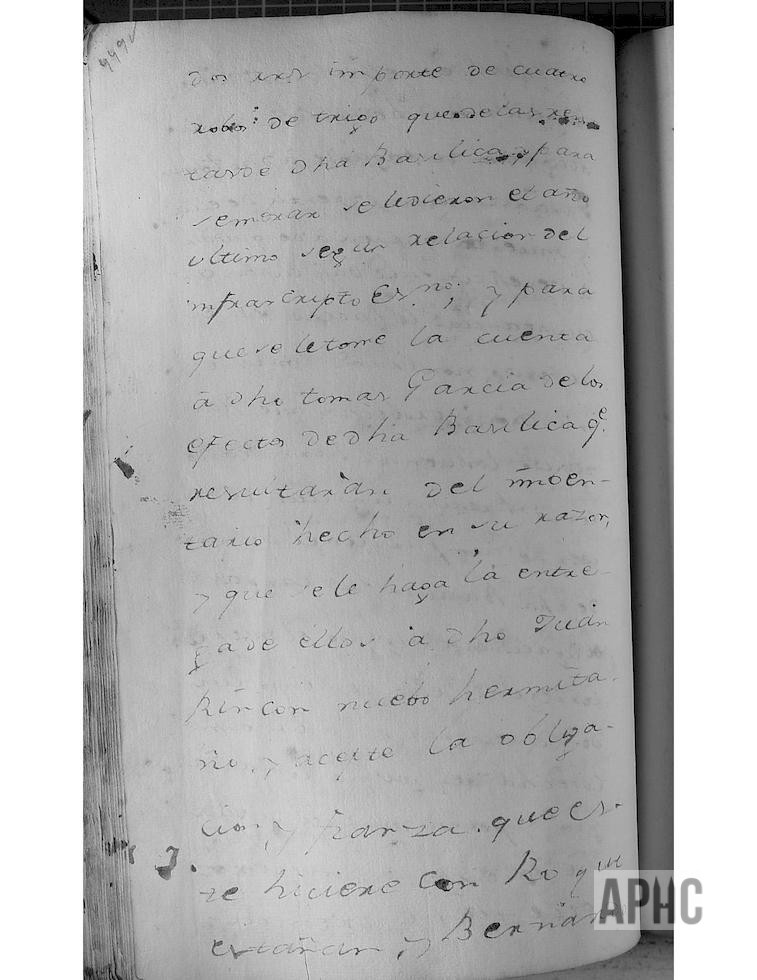 dos rrs importe de cuatro
robos de trigo que de las ren
tas de dha Basilica, y para
sembrar se le dieron el año
ultimo segun relacion del
infraescripto Esno.; y para
que se le tome la cuenta
à dho tomas Garcia de los
efectos de dha Basilica qe.
resultaràn del imben-
tario hecho en su razon,
y que se le haga la entre-
ga de ellos à dho Juan
Rincon nuebo hermita-
ño, y acepte la obliga-
cion, y fianza que es-
te hiciere con Ro
y Bernar
APHC